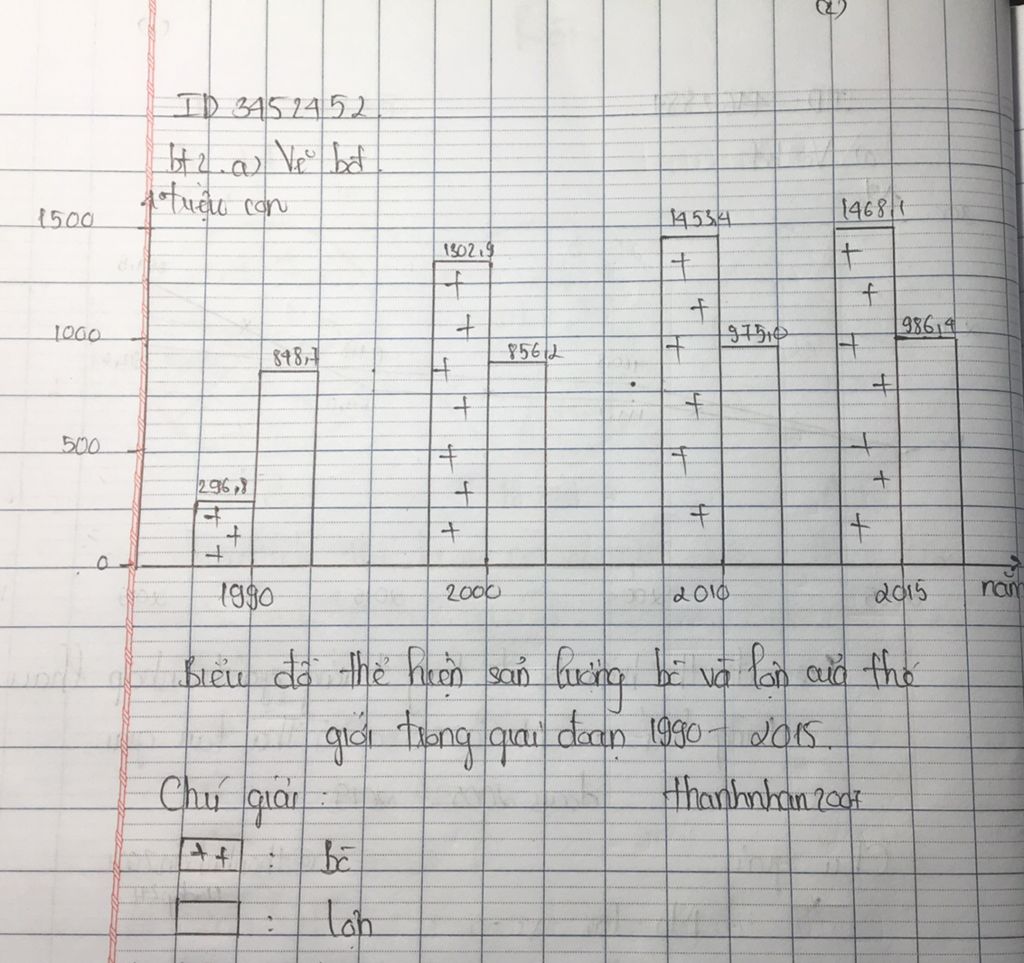 (2)
ID 3452452
bt2. a) Vẽ bđ.
triệu con
1500
1000
500
0
296,8
848,7
1302,9
856,2
1453,4
975,0
1468,1
986,4
1990
2000
2010
2015
năm
Biểu đồ thể hiện sản lượng bò và lợn của thế
giới trong giai đoạn 1990 - 2015.
Chú giải :
thanhnhan2007
++ : bò
: lợn